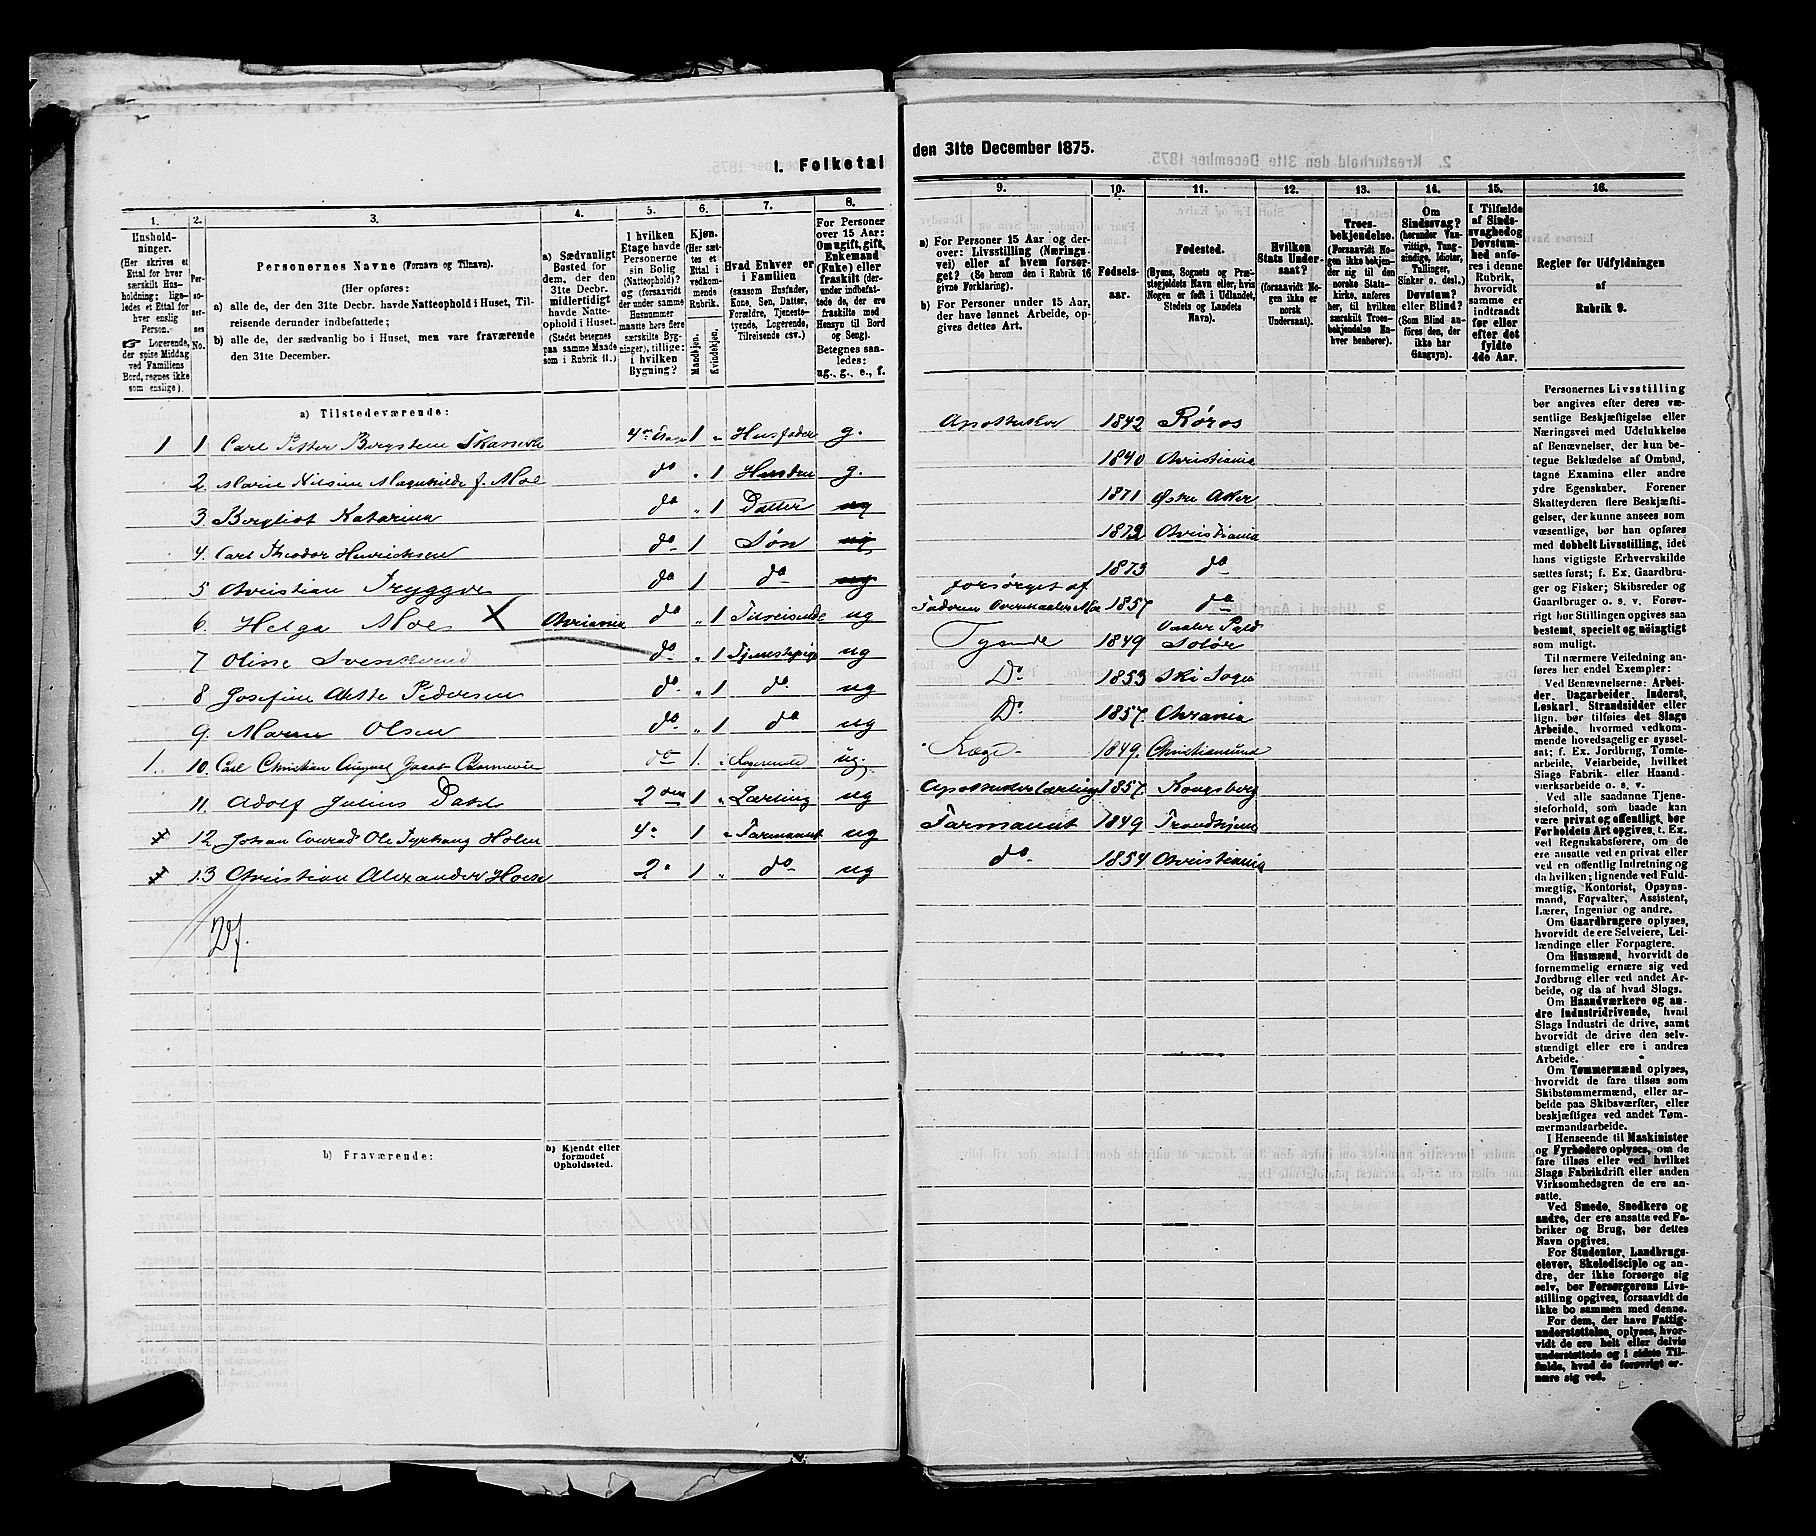 I. Folketal
den 31te December 1875.
1.
Husholdninger.
(Her skrives et Ettal for hver særskilt Husholdning; ligeledes et Ettal for hver enslig Person.
Logerende, der spise Middag ved Familiens Bord, regnes ikke som enslige).
2.
Personernes No.
3.
Personernes Navne (Fornavn og Tilnavn).
(Her opføres:
a) alle de, der den 31te Decbr. havde Natteophold i Huset, Tilreisende derunder indbefattede;
b) alle de, der sædvanlig bo i Huset, men vare fraværende den 31te December.
4.
a) Sædvanligt Bosted for dem, der den 31te Decbr. midlertidigt havde Natteophold i Huset.
(Stedet betegnes paa samme Maade som i Rubrik 11.)
5.
I hvilken Etage havde Personerne sin Bolig (Natteophold)? og (forsaavidt der under samme Husnummer maatte høre flere særskilte Bygninger), tillige: i hvilken Bygning?
6.
Kjøn.
(Her sættes et Ettal i vedkommende Rubrik.
Mandkjøn.
Kvindekjøn.
7.
Hvad Enhver er i Familien
(saasom Husfader, Kone, Søn, Datter, Forældre, Tjenestetyende, Logerende, Tilreisende osv.)
8.
For Personer over 15 Aar: Om ugift, gift, Enkemand (Enke) eller fraskilt (derunder indbefattede de, der ere fraskilte med Hensyn til Bord og Seng).
Betegnes saaledes: ug., g., e., f.
9.
a) For Personer 15 Aar og derover: Livsstilling (Næringsvei) eller af hvem forsørget? (Se herom den i Rubrik 16 givne Forklaring).
b) For Personer under 15 Aar, der have lønnet Arbeide, opgives dettes Art.
10.
Fødselsaar.
11.
Fødested.
(Byens, Sognets og Præstegjeldets Navn eller, hvis Nogen er født i Udlandet, Stedets og Landets Navn).
12.
Hvilken Stats Undersaat?
(forsaavidt Nogen ikke er norsk Undersaat).
13.
Troesbekjendelse.
(Forsaavidt Nogen ikke bekjender sig til den norske Statskirke, anføres her, til hvilken særskilt Troesbekjendelse Enhver henhører).
14.
Om Sindssvag?
(herunder Vanvittige, Tungsindige, Idioter, Tullinger, Sinker o. desl.).
Døvstum? eller Blind?
(Som Blind anføres den, der ikke har Gangsyn).
15.
I Tilfælde af Sindssvaghed og Døvstumhed anføres i denne Rubrik, hvorvidt samme er indtraadt før eller efter det fyldte 4de Aar.
16.
Regler for Udfyldningen af Rubrik 9.
a) Tilstedeværende:
1 1 Carl Petter Bergsten 4de Etage 1 " Husfader g. Apotheker 1842 Røros
2 Marie Nilsine Magnhilde f. Moe do " 1 Hustru g. 1840 Christiania
3 Bergliot Katarina do " 1 Datter ug 1871 Østre Aker
4. Carl Theodor Henrichsen do 1 Søn ug 1872 Christiania
5 Christian Tryggve do 1 do ug 1873 do
6. Helga Moe X Chriania do " 1 Tilreisende ug forsørget af Faderen Overmaaler Moe 1857 do
7 Oline do " 1 Tjenestepige ug Tyende 1849 Vaaler Pgld Solør
8 Josefine Pedersen do " 1 do ug Do 1853 Ski Sogn
9. Maren Olsen do " 1 do ug Do 1857 Chrania
1. 10. Carl Christian August Jacob do 1. " Logerende ug. Læge 1849. Christiansund
11. Adolf Julius Dahl 2den 1 " Lærling ug Apothekerlærling 1857 Kongsberg
12 Johan Conrad Ole Holm 4" 1 " Farmaceut ug Farmaceut 1849 Trondhjem
13 Christian Alexander 2" 1 " do ug do 1854 Christiania
b) Fraværende:
b) Kjendt eller formodet Opholdssted.
Personernes Livsstilling
bør angives efter deres væsentlige Beskjæftigelse eller
Næringsvei med Udelukkelse
af Benævnelser, der kun betegne Beklædelse af Ombud,
tagne Examina eller andre
ydre Egenskaber. Forener
Skatteyderen flere Beskjæftigelser, der kunne ansees som
væsentlige, bør han opføres
med dobbelt Livsstilling, idet
hans vigtigste Erhvervskilde
sættes først; f. Ex. Gaardbruger og Fisker; Skibsreder og
Gaardbruger o. s. v. Forøvrigt bør Stillingen opgives saa
bestemt, specielt og nöiagtigt
som muligt.
Til nærmere Veiledning anføres her endel Exempler:
Ved Benævnelserne: Arbeider, Dagarbeider, Inderst,
Løskarl, Strandsidder eller
lign. bør tilføies det Slags
Arbeide, hvormed vedkommende hovedsagelig er sysselsat; f. Ex. Jordbrug, Tomtearbeide, Veiarbeide, hvilket
Slags Fabrik- eller Haandværksarbeide o. s. v.
Ved alle saadanne Tjenesteforhold, som baade kan
være privat og offentligt, bør
Forholdets Art opgives, t. Ex.
ved Regnskabsførere, om de
ere ansatte ved en privat eller
en offentlig Indretning og
da hvilken; lignende ved Fuldmægtig, Kontorist, Opsynsmand, Forvalter, Assistent,
Lærer, Ingeniør og andre.
Om Gaardbrugere oplyses,
hvorvidt de ere Selveiere, Leilændinge eller Forpagtere.
Om Husmænd, hvorvidt de
fornemmelig ernære sig ved
Jordbrug eller ved andet Arbeide, og da af hvad Slags.
Om Haandværkere og andre Industridrivende, hvad
Slags Industri de drive, samt
hvorvidt de drive den selvstændigt eller ere i andres
Arbeide.
Om Tømmermænd oplyses,
hvorvidt de fare tilsøs som
Skibstømmermænd, eller arbeide paa Skibsværfter, eller
beskjæftiges ved andet Tømmermandsarbeide.
I Henseende til Maskinister
og Fyrbødere oplyses, om de
fare tilsøs eller ved hvilket
Slags Fabrikdrift eller anden
Virksomhedsgren de ere ansatte.
Ved Smede, Snedkere og
andre, der ere ansatte ved Fabriker og Brug, bør dettes
Navn opgives.
For Studenter, Landbrugselever, Skoledisciple og andre, der ikke forsørge sig
selv, bør Forsørgerens Livsstilling opgives, forsaavidt de
ikke bo sammen med denne.
For dem, der have Fattigunderstøttelse, oplyses, hvorvidt de ere helt eller delvis
understøttede og i sidste Tilfælde, hvad de forøvrigt ernære sig ved.